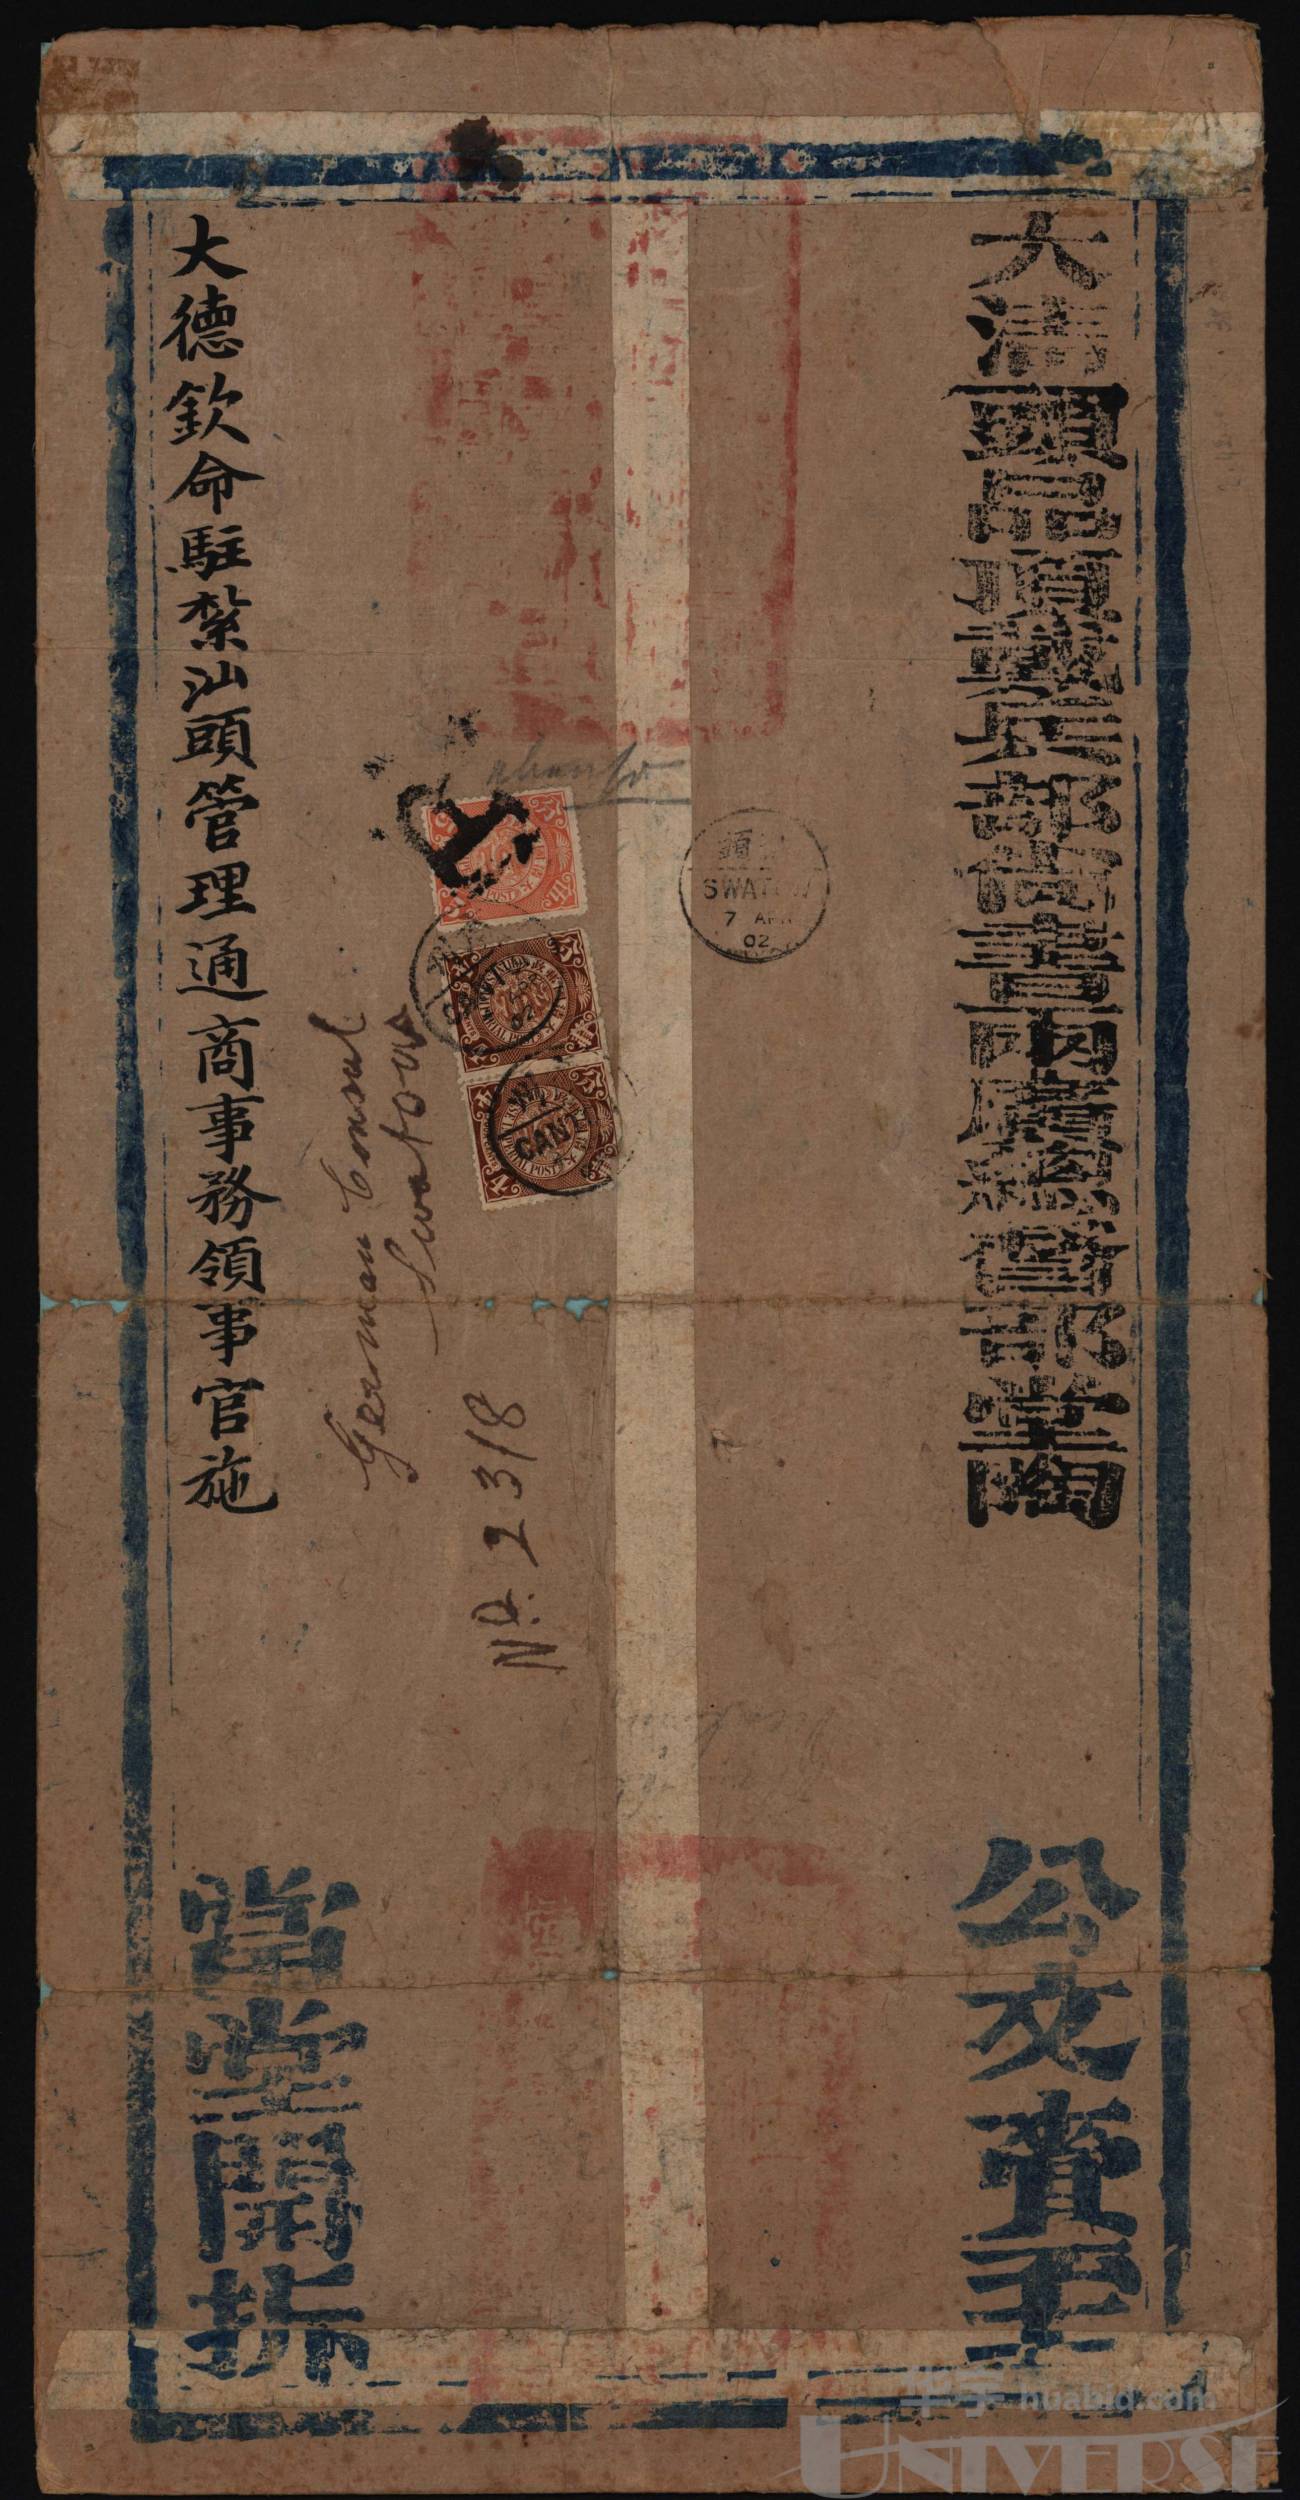 大清頭品頂戴兵部尚書兩廣總督部堂陶
公文賫至
大德欽命駐紮汕頭管理通商事務領事官施
當堂開拆
German Consul
Swatow
No. 2318
頭
SWATOW
7 APR
02
CANT
huabid.com
UNIVERSE